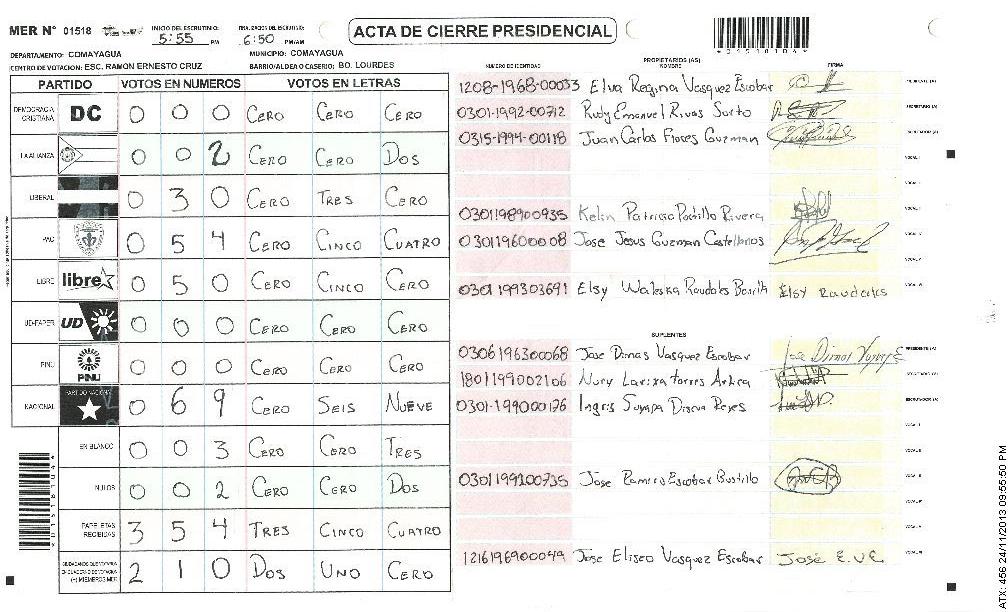 MER N° 01518 INICIO DEL ESCRUTINIO: 5:55 PM FINALIZACION DEL ESCRUTINIO: 6:50 PM/AM ACTA DE CIERRE PRESIDENCIAL
DEPARTAMENTO: COMAYAGUA MUNICIPIO: COMAYAGUA
CENTRO DE VOTACION: ESC. RAMON ERNESTO CRUZ BARRIO/ALDEA O CASERIO: BO. LOURDES
PARTIDO VOTOS EN NUMEROS VOTOS EN LETRAS
DEMOCRACIA CRISTIANA DC 0 0 0 CERO CERO CERO
LA ALIANZA 0 0 2 CERO CERO DOS
LIBERAL 0 3 0 CERO TRES CERO
PAC 0 5 4 CERO CINCO CUATRO
LIBRE libre 0 5 0 CERO CINCO CERO
UD-FAPER UD 0 0 0 CERO CERO CERO
PINU PINU 0 0 0 CERO CERO CERO
NACIONAL PARTIDO NACIONAL 0 6 9 CERO SEIS NUEVE
EN BLANCO 0 0 3 CERO CERO TRES
NULOS 0 0 2 CERO CERO DOS
PAPELETAS RECIBIDAS 3 5 4 TRES CINCO CUATRO
2 1 0 DOS UNO CERO
PROPIETARIOS (AS)
NUMERO DE IDENTIDAD NOMBRE FIRMA
1208-1968-00033 Elva Regina Vasquez Escobar
0301-1992-00712 Rudy Emanuel Rivas Surto
0315-1994-00118 Juan Carlos Flores Guzman
0301198900935 Kelin Patricia Portillo Rivera
0301196000008 Jose Jesus Guzman Castellanos
0301199303691 Elsy Waleska Raudales Bonilla Elsy Raudales
SUPLENTES
0306196300068 Jose Dimas Vasquez Escobar Jose Dimas
1801199002106 Nury Larixa Torres
0301-199000176 Ingris Suyapa Discua Reyes
0301199200735 Jose Ramiro Escobar Bustillo
1216196900049 Jose Eliseo Vasquez Escobar José E. V.E
ATX: 456 24/11/2013 09:55:50 PM